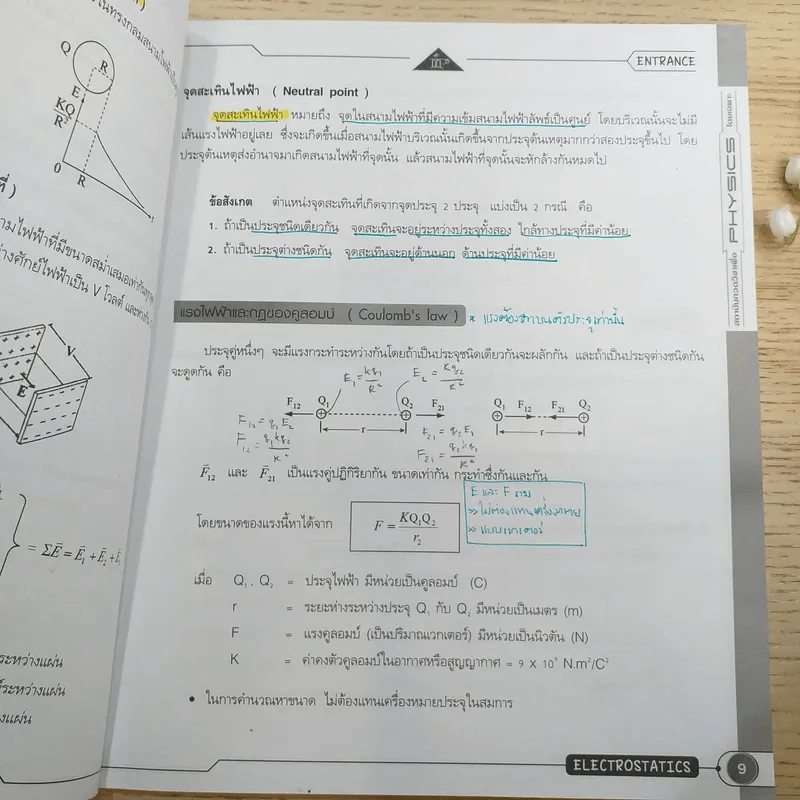 ในทรงกลมสนามไฟฟ้า
Q
R
E
KQ
R²
0
R
ที่ )
สนามไฟฟ้าที่มีขนาดสม่ำเสมอเท่ากันทุกๆ
ต่างศักย์ไฟฟ้าเป็น V โวลต์ และห่างกัน
V
E
= ΣE̅ = E̅₁ + E̅₂ +
ระหว่างแผ่น
ระหว่างแผ่น
างแผ่น
ENTRANCE
จุดสะเทินไฟฟ้า ( Neutral point )
จุดสะเทินไฟฟ้า หมายถึง จุดในสนามไฟฟ้าที่มีความเข้มสนามไฟฟ้าลัพธ์เป็นศูนย์ โดยบริเวณนั้นจะไม่มี
เส้นแรงไฟฟ้าอยู่เลย ซึ่งจะเกิดขึ้นเมื่อสนามไฟฟ้าบริเวณนั้นเกิดขึ้นจากประจุต้นเหตุมากกว่าสองประจุขึ้นไป โดย
ประจุต้นเหตุส่งอำนาจมาเกิดสนามไฟฟ้าที่จุดนั้น แล้วสนามไฟฟ้าที่จุดนั้นจะหักล้างกันหมดไป
ข้อสังเกต ตำแหน่งจุดสะเทินที่เกิดจากจุดประจุ 2 ประจุ แบ่งเป็น 2 กรณี คือ
1. ถ้าเป็นประจุชนิดเดียวกัน จุดสะเทินจะอยู่ระหว่างประจุทั้งสอง ใกล้ทางประจุที่มีค่าน้อย
2. ถ้าเป็นประจุต่างชนิดกัน จุดสะเทินจะอยู่ด้านนอก ด้านประจุที่มีค่าน้อย
แรงไฟฟ้าและกฎของคูลอมบ์ ( Coulomb's law ) * แรงต้องหาบนตัวประจุเท่านั้น
ประจุคู่หนึ่งๆ จะมีแรงกระทำระหว่างกันโดยถ้าเป็นประจุชนิดเดียวกันจะผลักกัน และถ้าเป็นประจุต่างชนิดกัน
จะดูดกัน คือ
E₁ = kq₁/R² E₂ = kq₂/R²
F₁₂ Q₁ Q₂ F₂₁ Q₁ F₁₂ F₂₁ Q₂
r r
F₁₂ = q₁E₂ F₂₁ = q₂E₁
F₁₂ = q₁kq₂/R² F₂₁ = q₂kq₁/R²
F̅₁₂ และ F̅₂₁ เป็นแรงคู่ปฏิกิริยากัน ขนาดเท่ากัน กระทำซึ่งกันและกัน
E และ F รวม
>> ไม่ต้องแทนเครื่องหมาย
>> แบบเวกเตอร์
โดยขนาดของแรงนี้หาได้จาก F = KQ₁Q₂/r₂
เมื่อ Q₁ , Q₂ = ประจุไฟฟ้า มีหน่วยเป็นคูลอมบ์ (C)
r = ระยะห่างระหว่างประจุ Q₁ กับ Q₂ มีหน่วยเป็นเมตร (m)
F = แรงคูลอมบ์ (เป็นปริมาณเวกเตอร์) มีหน่วยเป็นนิวตัน (N)
K = ค่าคงตัวคูลอมบ์ในอากาศหรือสูญญากาศ = 9 X 10⁹ N.m²/C²
• ในการคำนวณหาขนาด ไม่ต้องแทนเครื่องหมายประจุในสมการ
ELECTROSTATICS 9
สถาบันกวดวิชาเพื่อ PHYSICS โดยเฉพาะ